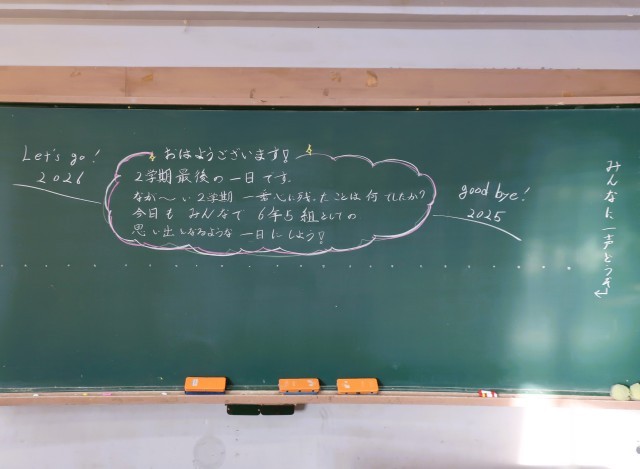 Let's go!
2026
おはようございます!
2学期最後の一日です.
なが〜い2学期 一番心に残ったことは何でしたか?
今日も みんなで 6年5組としての
思い出となるような 一日にしよう!
good bye!
2025
みんなに一声どうぞ